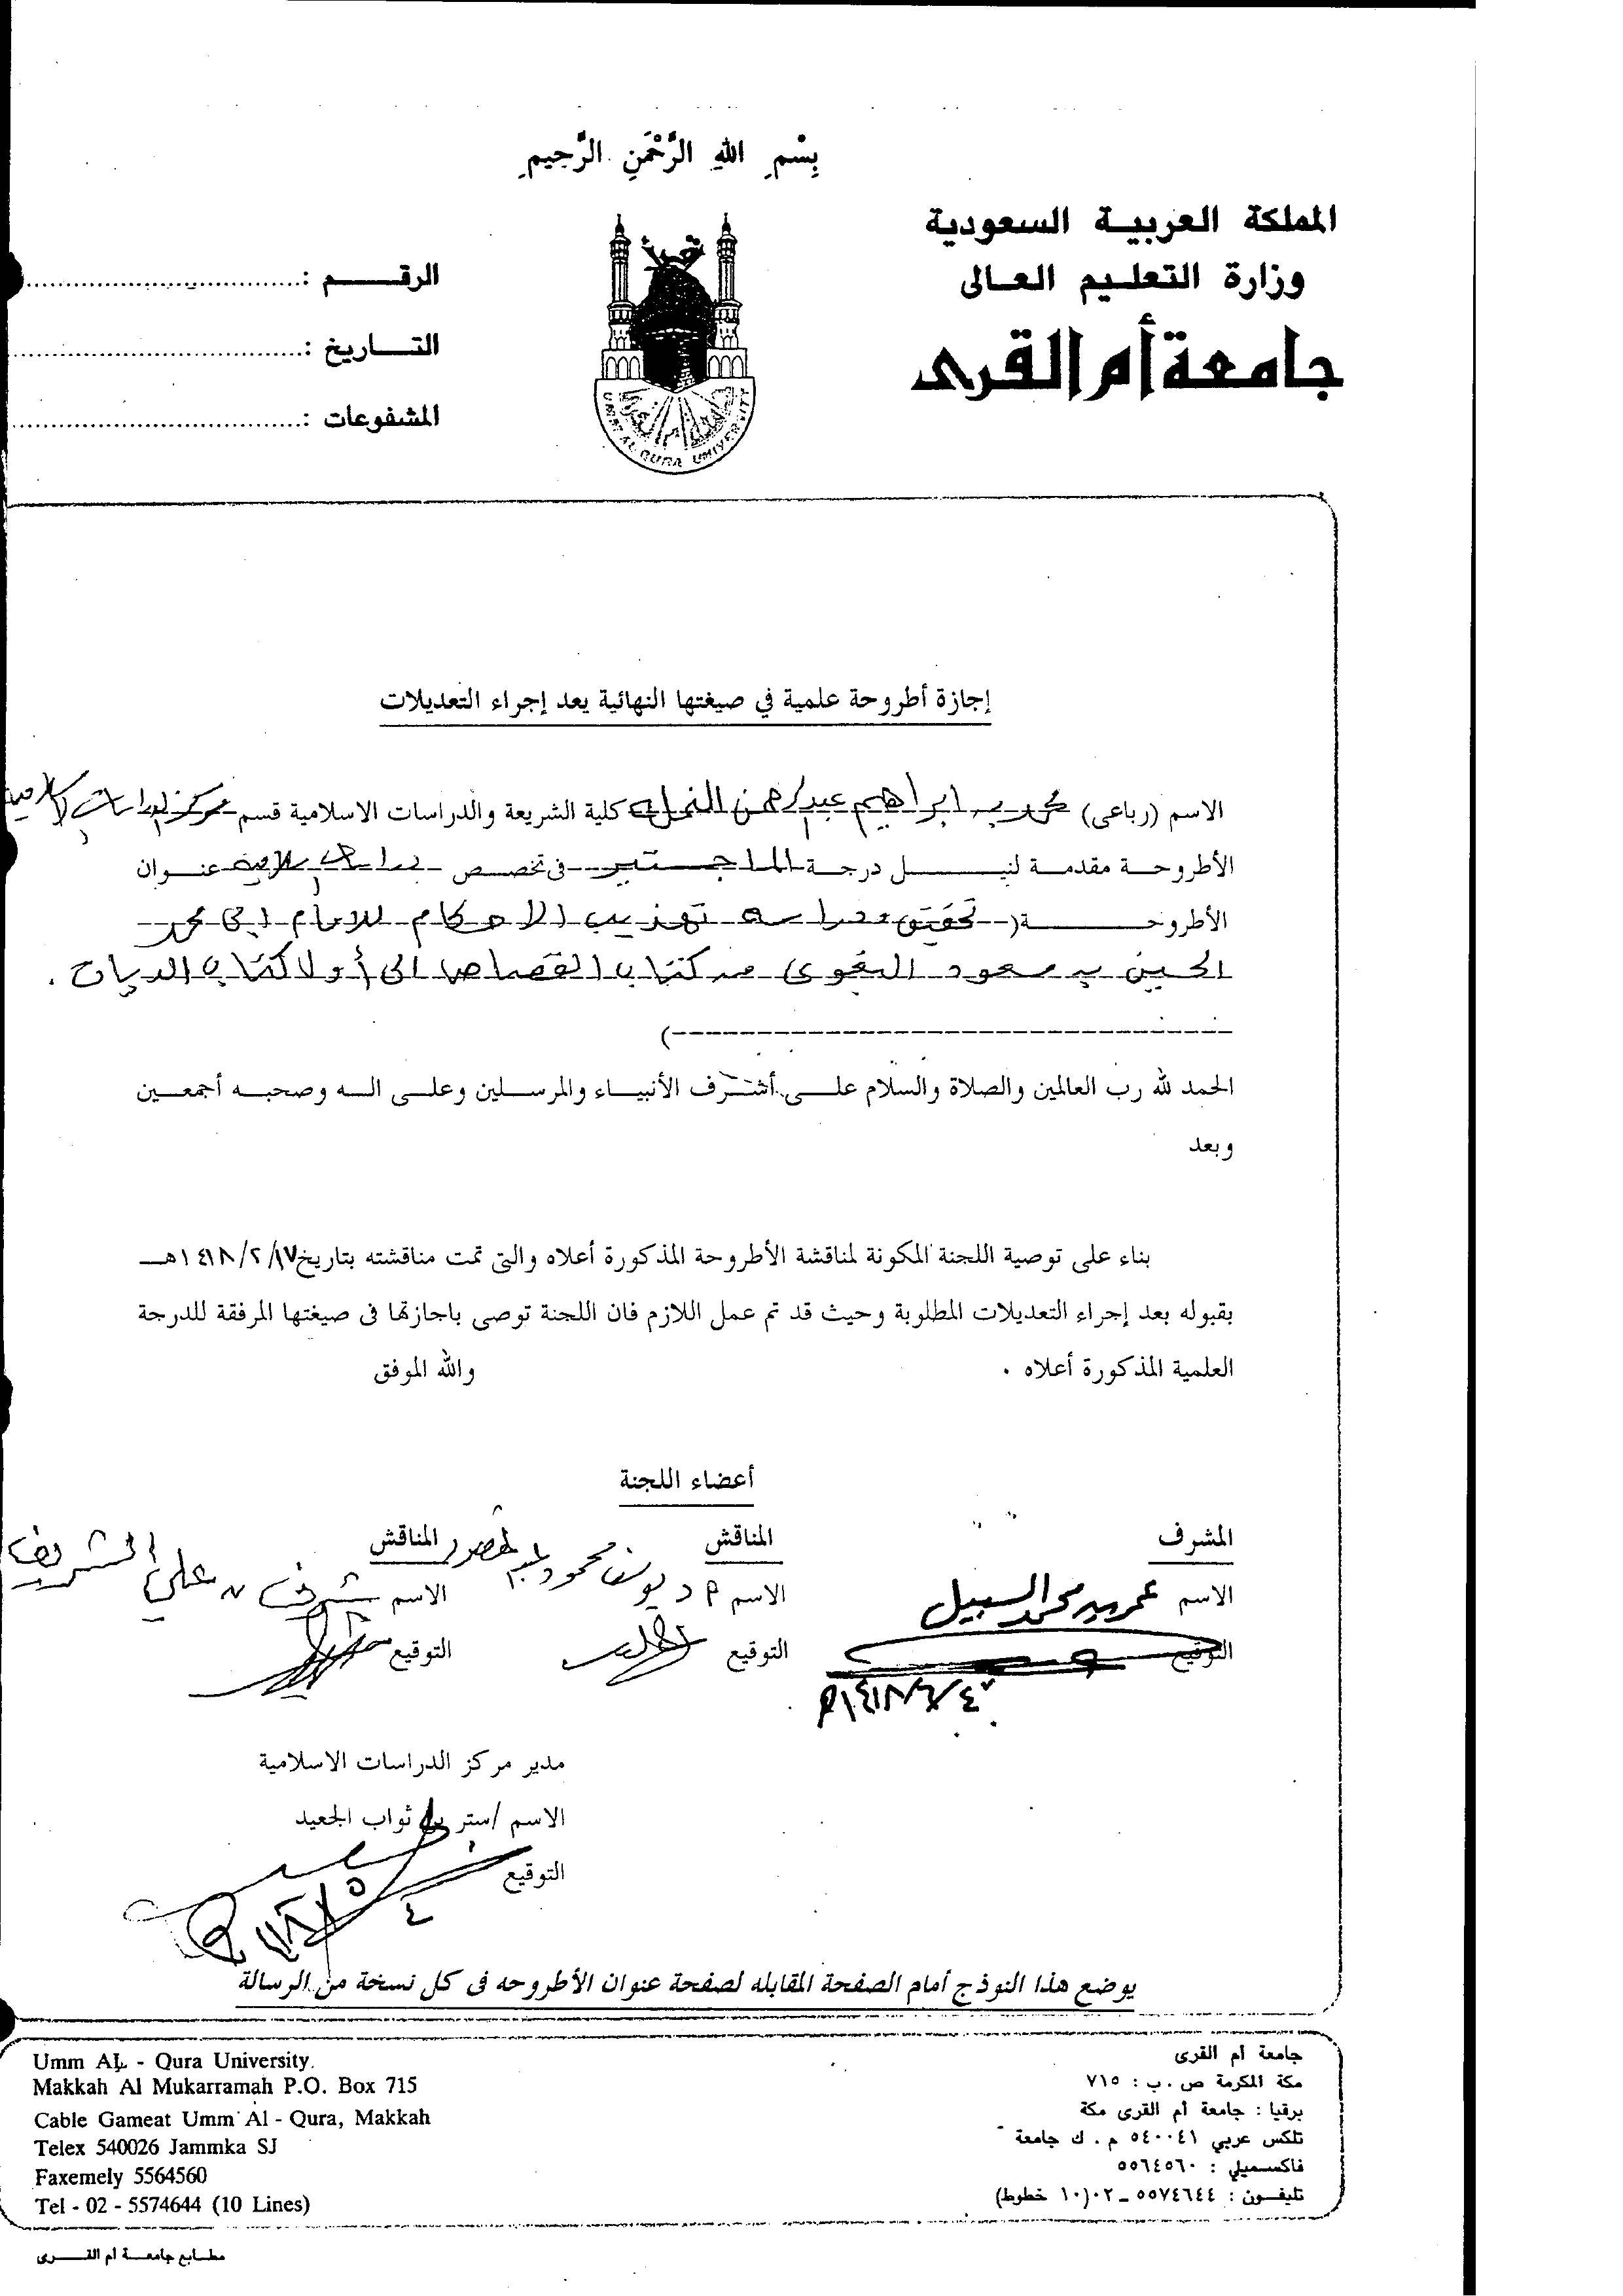 بِسْمِ اللهِ الرَّحْمَنِ الرَّحِيمِ
المملكة العربية السعودية
وزارة التعليم العالى
جامعة أم القرى
الرقم :
التاريخ :
المشفوعات :
UMM AL QURA UNIVERSITY
إجازة أطروحة علمية في صيغتها النهائية بعد إجراء التعديلات
الاسم (رباعى) محمد بن ابراهيم عبدالرحمن النمله كلية الشريعة والدراسات الاسلامية قسم مركز الدراسات الاسلامية
الأطروحة مقدمة لنيل درجة الماجستير فى تخصص دراسات إسلامية عنوان
الأطروحة ( تحقيق ودراسة تهذيب الاحكام للامام ابى محمد
الحسين بن مسعود البغوى من كتاب القصاص الى أول كتاب الديات .
)
الحمد لله رب العالمين والصلاة والسلام على أشرف الأنبياء والمرسلين وعلى اله وصحبه أجمعين
وبعد
بناء على توصية اللجنة المكونة لمناقشة الأطروحة المذكورة أعلاه والتى تمت مناقشته بتاريخ ١٤١٨/٢/١٧هـ
بقبوله بعد إجراء التعديلات المطلوبة وحيث قد تم عمل اللازم فان اللجنة توصى باجازتها فى صيغتها المرفقة للدرجة
العلمية المذكورة أعلاه . والله الموفق
أعضاء اللجنة
المشرف المناقش المناقش
الاسم عمر بن محمد السبيل الاسم د يوسف محمود عبد المقصود الاسم شرف بن علي الشريف
التوقيع التوقيع التوقيع
مدير مركز الدراسات الاسلامية
الاسم /ستر بن ثواب الجعيد
التوقيع
يوضع هذا النموذج أمام الصفحة المقابله لصفحة عنوان الأطروحه فى كل نسخة من الرسالة
جامعة أم القرى
مكة المكرمة ص . ب : ٧١٥
برقيا : جامعة أم القرى مكة
تلكس عربي ٥٤٠٠٤١ م . ك جامعة
فاكسميلي : ٥٥٦٤٥٦٠
تليفون : ٥٥٧٤٦٤٤ ـ ٠٢ (١٠ خطوط)
Umm AL - Qura University.
Makkah Al Mukarramah P.O. Box 715
Cable Gameat Umm Al - Qura, Makkah
Telex 540026 Jammka SJ
Faxemely 5564560
Tel - 02 - 5574644 (10 Lines)
مطابع جامعة أم القرى